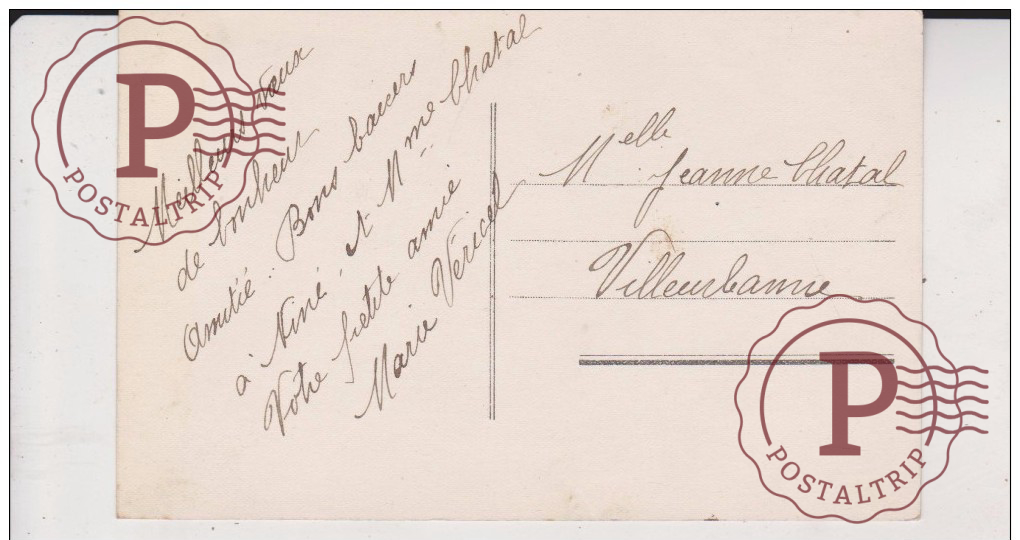 Meilleurs vœux
de bonheur
Amitié. Bons baisers
à Niné et Mme Chatal
Votre petite amie
Marie Véricel
Melle Jeanne Chatal
Villeurbanne
P
POSTALTRIP
P
POSTALTRIP